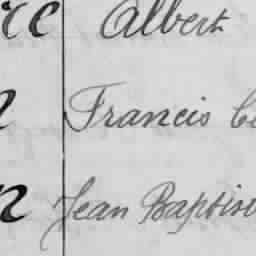 re Albert
n Francis
n Jean Baptiste